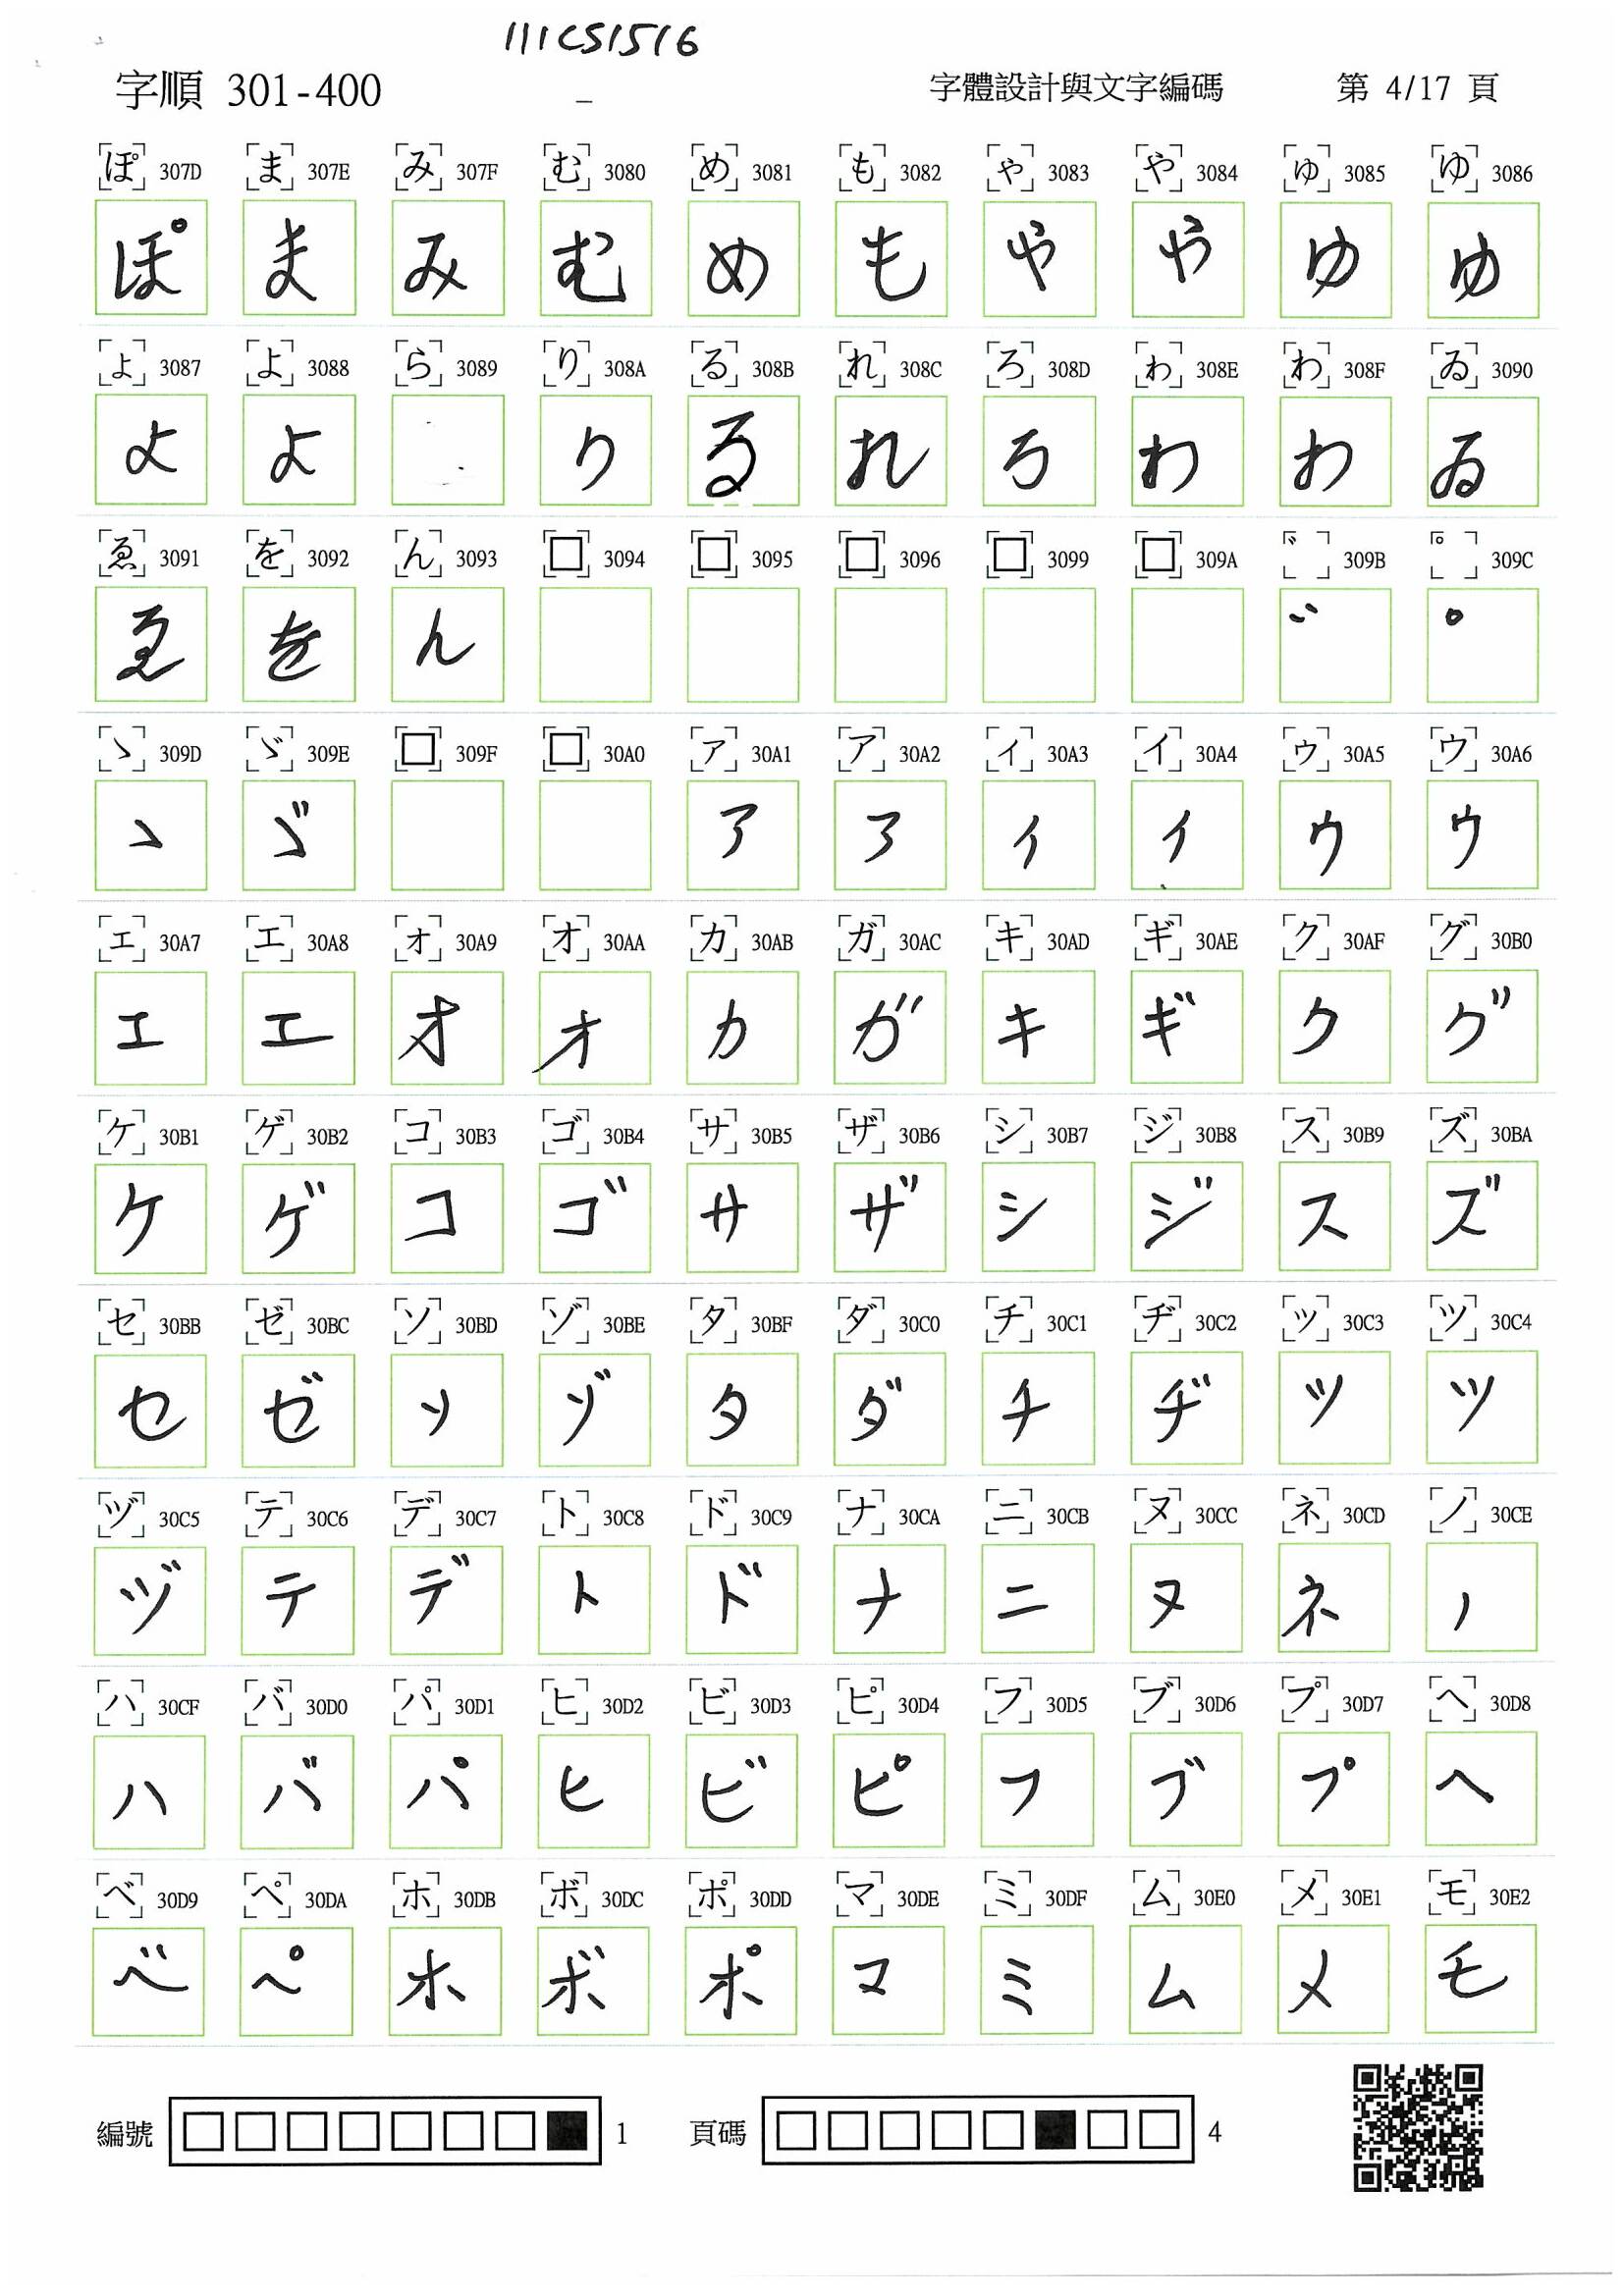 111CS1516
字順 301-400 _ 字體設計與文字編碼 第 4/17 頁
ぽ 307D ま 307E み 307F む 3080 め 3081 も 3082 ゃ 3083 や 3084 ゅ 3085 ゆ 3086
ぽ ま み む め も ゃ や ゅ ゆ
ょ 3087 よ 3088 ら 3089 り 308A る 308B れ 308C ろ 308D ゎ 308E わ 308F ゐ 3090
ょ よ り る れ ろ ゎ わ ゐ
ゑ 3091 を 3092 ん 3093 □ 3094 □ 3095 □ 3096 □ 3099 □ 309A ゛ 309B ゜ 309C
ゑ を ん ゛ ゜
ゝ 309D ゞ 309E □ 309F □ 30A0 ァ 30A1 ア 30A2 ィ 30A3 イ 30A4 ゥ 30A5 ウ 30A6
ゝ ゞ ァ ア ィ イ ゥ ウ
ェ 30A7 エ 30A8 ォ 30A9 オ 30AA カ 30AB ガ 30AC キ 30AD ギ 30AE ク 30AF グ 30B0
ェ エ ォ オ カ ガ キ ギ ク グ
ケ 30B1 ゲ 30B2 コ 30B3 ゴ 30B4 サ 30B5 ザ 30B6 シ 30B7 ジ 30B8 ス 30B9 ズ 30BA
ケ ゲ コ ゴ サ ザ シ ジ ス ズ
セ 30BB ゼ 30BC ソ 30BD ゾ 30BE タ 30BF ダ 30C0 チ 30C1 ヂ 30C2 ッ 30C3 ツ 30C4
セ ゼ ソ ゾ タ ダ チ ヂ ッ ツ
ヅ 30C5 テ 30C6 デ 30C7 ト 30C8 ド 30C9 ナ 30CA ニ 30CB ヌ 30CC ネ 30CD ノ 30CE
ヅ テ デ ト ド ナ ニ ヌ ネ ノ
ハ 30CF バ 30D0 パ 30D1 ヒ 30D2 ビ 30D3 ピ 30D4 フ 30D5 ブ 30D6 プ 30D7 ヘ 30D8
ハ バ パ ヒ ビ ピ フ ブ プ ヘ
ベ 30D9 ペ 30DA ホ 30DB ボ 30DC ポ 30DD マ 30DE ミ 30DF ム 30E0 メ 30E1 モ 30E2
ベ ペ ホ ボ ポ マ ミ ム メ モ
編號 □□□□□□□■ 1 頁碼 □□□□□■□□ 4